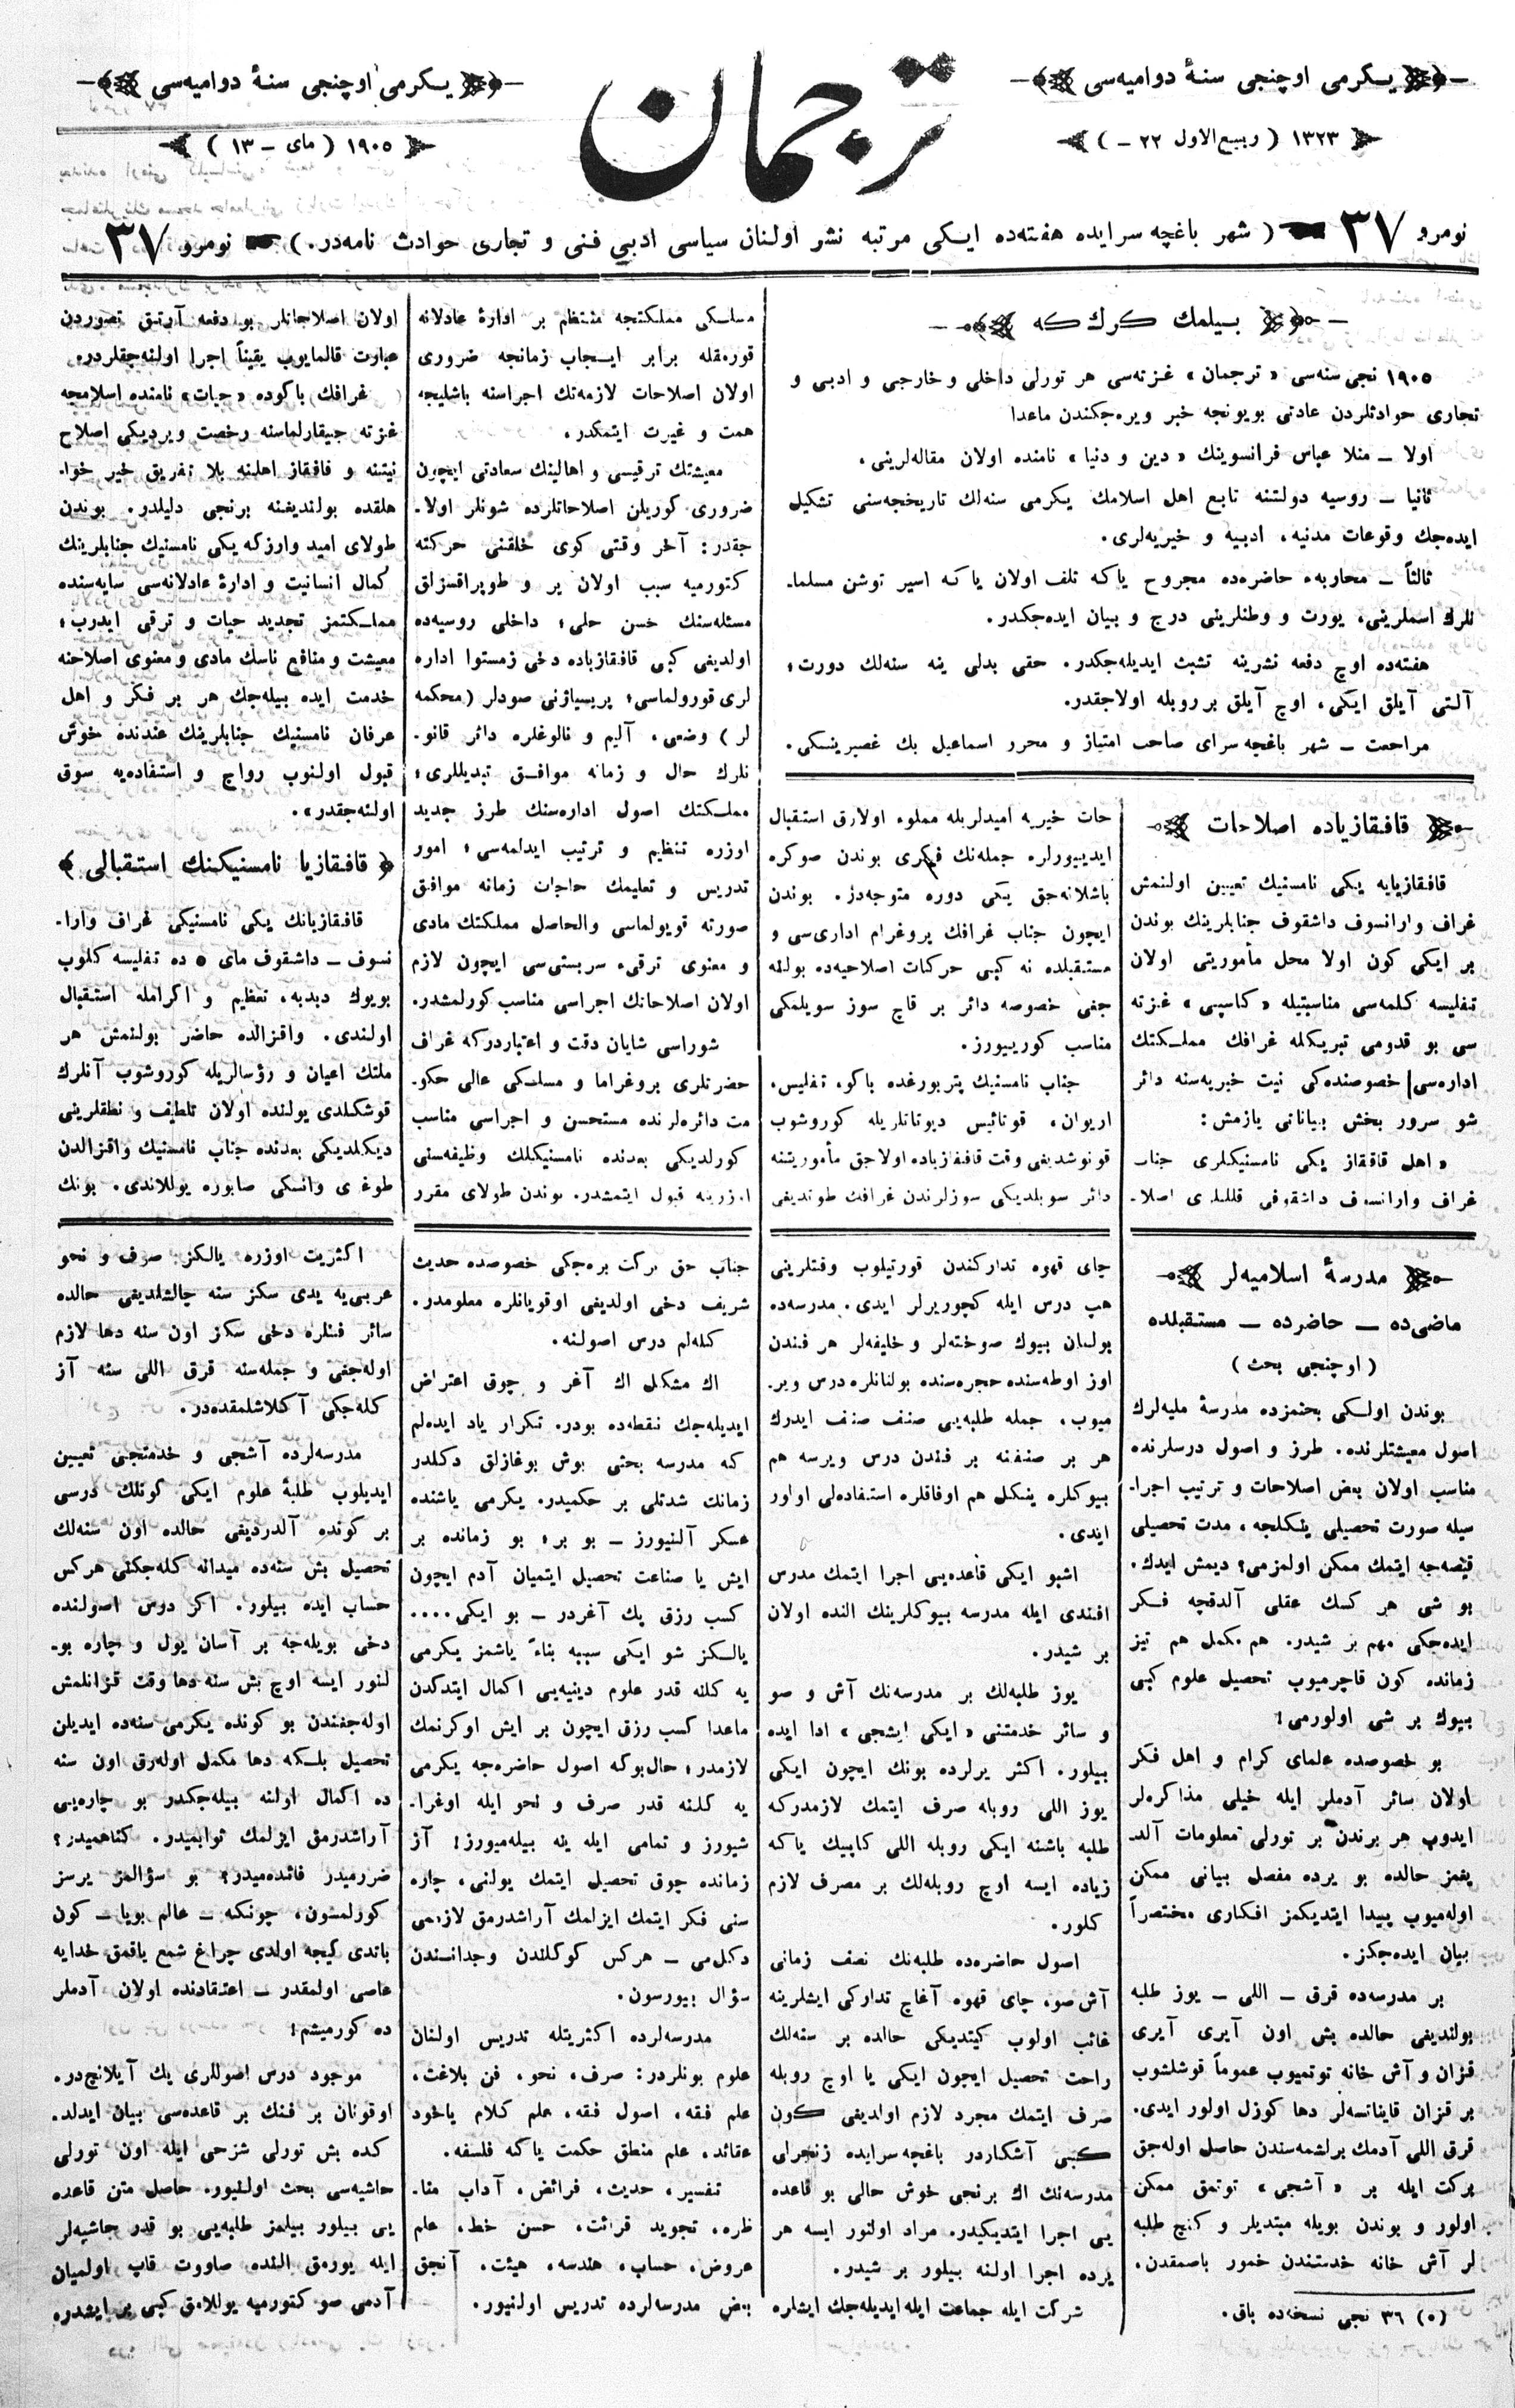 یكرمی اوچنجی سنهٔ دوامیه‌سی
۱۳۲۳ ( ربیع‌الاول ۲۲ – )
ترجمان
یكرمی اوچنجی سنهٔ دوامیه‌سی
۱۹۰۵ ( مای – ۱۳ )
نومرو ۳۷ ( شهر باغچه سرایده هفته‌ده ایكی مرتبه نشر اولنان سیاسی ادبی فنی و تجاری حوادث نامه‌در. ) نومرو ۳۷
بیلمك كرك كه
۱۹۰۵ نجی سنه‌سی « ترجمان » غزته‌سی هر تورلی داخلی و خارجی و ادبی و
تجاری حوادثلردن عادتی بویونجه خبر ویره‌جكندن ماعدا
اولا – منلا عباس فرانسوینك « دین و دنیا » نامنده اولان مقاله‌لرینی،
ثانیا – روسیه دولتنه تابع اهل اسلامك یكرمی سنه‌لك تاریخجه‌سنی تشكیل
ایده‌جك وقوعات مدنیه، ادبیه و خیریه‌لری.
ثالثاً – محاربهء حاضره‌ده مجروح یاكه تلف اولان یاكه اسیر توشن مسلما-
نلرك اسملرینی، یورت و وطنلرینی درج و بیان ایده‌جكدر.
هفته‌ده اوچ دفعه نشرینه تشبث ایدیله‌جكدر. حقی بدلی ینه سنه‌لك دورت؛
آلتی آیلق ایكی، اوچ آیلق بر روبله اولاجقدر.
مراجعت – شهر باغچه سرای صاحب امتیاز و محرر اسماعیل بك غصپرینسكی.
قافقازیاده اصلاحات
قافقازیایه یكی نامسنیك تعیین اولنمش
غراف وارانسوف داشقوف جنابلرینك بوندن
بر ایكی كون اولا محل مأموریتی اولان
تفلیسه كلمه‌سی مناسبتیله « كاسپی » غزته
سی بو قدومی تبریكله غرافك مملكتك
اداره‌سی خصوصنده‌كی نیت خیریه‌سنه دائر
شو سرور بخش بیاناتی یازمش:
« اهل قافقاز یكی نامسنیكلری جناب
غراف وارانسوف داشقوفی قلبلری اصلا-
حات خیریه امیدلریله مملوء اولارق استقبال
ایدییورلر. جمله‌نك فكری بوندن صوكره
باشلانه‌جق یكی دوره متوجه‌در. بوندن
ایچون جناب غرافك پروغرام اداری‌سی و
مستقبلده نه كبی حركات اصلاحیه‌ده بولنه
جغی خصوصه دائر بر قاچ سوز سویلمكی
مناسب كورییورز.
جناب نامسنیك پتربورغده باكو، تفلیس،
اریوان، قوتائیس دپوتاتلریله كوروشوب
قونوشدیغی وقت قافقازیاده اولاجق مأموریتنه
دائر سویلدیكی سوزلرندن غرافك طوتدیغی
مسلكی مملكتجه منتظم بر ادارهٔ عادلانه
قورمقله برابر ایجاب زمانجه ضروری
اولان اصلاحات لازمه‌نك اجراسنه باشلیجه
همت و غیرت ایتمكدر.
معیشتك ترقیسی و اهالینك سعادتی ایچون
ضروری كوریلن اصلاحاتلرده شونلر اولا-
جقدر: آخر وقتی كوی خلقنی حركته
كتورمیه سبب اولان یر و طوپراقسزلق
مسئله‌سنك حسن حلی؛ داخلی روسیه‌ده
اولدیغی كبی قافقازیاده دخی زمستوا اداره
لری قورولماسی؛ پریسیاژنی صودلر (محكمه
لر) وضعی، آلیم و نالوغلره دائر قانو-
نلرك حال و زمانه موافق تبدیللری؛
مملكتك اصول اداره‌سنك طرز جدید
اوزره تنظیم و ترتیب ایدلمه‌سی؛ امور
تدریس و تعلیمك حاجات زمانه موافق
صورته قویولماسی والحاصل مملكتك مادی
و معنوی ترقیء سربستی‌سی ایچون لازم
اولان اصلاحاتك اجراسی مناسب كورلمشدر.
شوراسی شایان دقت و اعتباردركه غراف
حضرتلری پروغراما و مسلكی عالی حكو-
مت دائره‌لرنده مستحسن و اجراسی مناسب
كورلدیكی بعدنده نامسنیكلك وظیفه‌سنی
اوزرینه قبول ایتمشدر. بوندن طولای مقرر
اولان اصلاحاتلر بو دفعه آرتق تصوردن
عبارت قالمایوب یقیناً اجرا اولنه‌چقلردر.
غرافك باكوده «حیات» نامنده اسلامجه
غزته چیقارلماسنه رخصت ویردیكی اصلاح
نیتنه و قافقاز اهلینه بلا تفریق خیر خوا-
هلقده بولندیغنه برنجی دلیلدر. بوندن
طولای امید واركه یكی نامسنیك جنابلرینك
كمال انسانیت و ادارهٔ عادلانه‌سی سایه‌سنده
مملكتمز تجدید حیات و ترقی ایدرب؛
معیشت و منافع ناسك مادی و معنوی اصلاحنه
خدمت ایده بیله‌جك هر بر فكر و اهل
عرفان نامسنیك جنابلرینك عندنده خوش
قبول اولنوب رواج و استفاده‌یه سوق
اولنه‌جقدر».
﴿ قافقازیا نامسنیكنك استقبالی ﴾
قافقازیانك یكی نامسنیكی غراف وارا-
نسوف – داشقوف مای ۵ ده تفلیسه كلوب
بویوك دبدبه، تعظیم و اكرامله استقبال
اولندی. واقزالده حاضر بولنمش هر
ملتك اعیان و رؤسالریله كوروشوب آنلرك
قوشكلدی یولنده اولان تلطیف و نطقلرینی
دیكلدیكی بعدنده جناب نامسنیك واقزالدن
طوغری وانسكی صابوره یوللاندی. بونك
مدرسهٔ اسلامیه‌لر
ماضی‌ده – حاضرده – مستقبلده
( اوچنجی بحث )
بوندن اولكی بحثمزده مدرسهٔ ملیه‌لرك
اصول معیشتلرنده، طرز و اصول درسلرنده
مناسب اولان بعض اصلاحات و ترتیب اجرا-
سیله صورت تحصیلی ینكلجه، مدت تحصیلی
قیصه‌جه ایتمك ممكن اولمزمی؟ دیمش ایدك.
بو شی هر كسك عقلی آلدقچه فكر
ایده‌جكی مهم بر شیدر. هم مكمل هم تیز
زمانده كون قاچرمیوب تحصیل علوم كبی
بیوك بر شی اولورمی!
بو خصوصده علمای كرام و اهل فكر
اولان سائر آدملر ایله خیلی مذاكره‌لر
ایدوب هر برندن بر تورلی معلومات آلد-
یغمز حالده بو یرده مفصل بیانی ممكن
اوله‌میوب پیدا ایتدیكمز افكاری مختصراً
بیان ایده‌جكز.
بر مدرسه‌ده قرق – اللی – یوز طلبه
بولندیغی حالده بش اون آیری آیری
قزان و آش خانه توتمیوب عموماً قوشلشوب
بر قزان قایناتسه‌لر دها كوزل اولور ایدی.
قرق اللی آدمك برلشمه‌سندن حاصل اوله‌جق
بركت ایله بر « آشجی » توتمق ممكن
اولور و بوندن بویله مبتدیلر و كنچ طلبه
لر آش خانه خدمتندن خمور باصمقدن،
(٥) ۳۶ نجی نسخه‌ده باق.
چای قهوه تداركندن قورتیلوب وقتلرینی
هپ درس ایله كچوریرلر ایدی. مدرسه‌ده
بولنان بیوك صوخته‌لر و خلیفه‌لر هر فندن
اوز اوطه‌سنده حجره‌سنده بولنانلره درس ویر-
میوب، جمله طلبه‌یی صنف صنف ایدرك
هر بر صنفنه بر فندن درس ویرسه هم
بیوكلره ینكل هم اوفاقلره استفاده‌لی اولور
ایدی.
اشبو ایكی قاعده‌یی اجرا ایتمك مدرس
افندی ایله مدرسه بیوكلرینك النده اولان
بر شیدر.
یوز طلبه‌لك بر مدرسه‌نك آش و صو
و سائر خدمتنی « ایكی ایشجی » ادا ایده
بیلور. اكثر یرلرده بونك ایچون ایكی
یوز اللی روبله صرف ایتمك لازمدركه
طلبه باشنه ایكی روبله اللی كاپیك یاكه
زیاده ایسه اوچ روبله‌لك بر مصرف لازم
كلور.
اصول حاضره‌ده طلبه‌نك نصف زمانی
آش صو، چای قهوه آغاچ تداركی ایشلرینه
غائب اولوب كیتدیكی حالده بر سنه‌لك
راحت تحصیل ایچون ایكی یا اوچ روبله
صرف ایتمك مجرد لازم اولدیغی كون
كبی آشكاردر باغچه سرایده زنجرلی
مدرسه‌نك اك برنجی خوش حالی بو قاعده
یی اجرا ایتدیكیدر. مراد اولنور ایسه هر
یرده اجرا اولنه بیلور بر شیدر.
شركت ایله جماعت ایله ایدیله‌جك ایشلره
جناب حق بركت بره‌جكی خصوصده حدیث
شریف دخی اولدیغی اوقویانلره معلومدر.
كله‌لم درس اصولنه.
اك مشكل اك آغر و چوق اعتراض
ایدیله‌جك نقطه‌ده بودر. تكرار یاد ایده‌لم
كه مدرسه بحثی بوش بوغازلق دكلدر
زمانك شدتلی بر حكمیدر. یكرمی یاشنده
عسكر آلنیورز – بو بر؛ بو زمانده بر
ایش یا صناعت تحصیل ایتمیان آدم ایچون
كسب رزق پك آغردر – بو ایكی....
یالكز شو ایكی سببه بناءً یاشمز یكرمی
یه كلنه قدر علوم دینیه‌یی اكمال ایتدكدن
ماعدا كسب رزق ایچون بر ایش اوكرنمك
لازمدر؛ حال‌بوكه اصول حاضره‌جه یكرمی
یه كلنه قدر صرف و نحو ایله اوغرا-
شیورز و تمامی ایله ینه بیله‌میورز! آز
زمانده چوق تحصیل ایتمك یولنی، چاره
سنی فكر ایتمك ایزلمك آراشدرمق لازمی
دكل‌می – هركس كوكلندن وجدانندن
سؤال بیورسون.
مدرسه‌لرده اكثریتله تدریس اولنان
علوم بونلردر: صرف، نحو، فن بلاغت،
علم فقه، اصول فقه، علم كلام یاخود
عقائد، علم منطق حكمت یاكه فلسفه،
تفسیر، حدیث، فرائض، آداب منا-
ظره، تجوید قرائت، حسن خط، علم
عروض، حساب، هندسه، هیئت. آنجق
بعض مدرسه‌لرده تدریس اولنیور.
اكثریت اوزره یالكز صرف و نحو
عربی‌یه یدی سكز سنه چالشلدیغی حالده
سائر فنلره دخی سكز اون سنه دها لازم
اوله‌جغی و جمله‌سنه قرق اللی سنه آز
كله‌جكی آكلاشلمقده‌در.
مدرسه‌لرده آشجی و خدمتجی تعیین
ایدیلوب طلبهٔ علوم ایكی كونلك درسی
بر كونده آلدردیغی حالده اون سنه‌لك
تحصیل بش سنه‌ده میدانه كله‌جكنی هركس
حساب ایده بیلور. اكر درس اصولنده
دخی بویله‌جه بر آسان یول و چاره بو-
لنور ایسه اوچ بش سنه دها وقت قزانلمش
اوله‌جغندن بو كونده یكرمی سنه‌ده ایدیلن
تحصیل بلكه دها مكمل اوله‌رق اون سنه
ده اكمال اولنه بیله‌جكدر بو چاره‌یی
آراشدرمق ایزلمك ثوابمیدر. كناهمیدر؟
ضررمیدر فائده‌میدر؟ بو سؤالمز یرسز
كورلمسون، چونكه – عالم بویا – كون
باتدی كیجه اولدی چراغ شمع یاقمق خدایه
عاصی اولمقدر – اعتقادنده اولان آدملر
ده كورمیشم!
موجود درس اصوللری پك آیلانج‌در.
اوقونان بر فنك بر قاعده‌سی بیان ایدلد-
كده بش تورلی شرحی ایله اون تورلی
حاشیه‌سی بحث اولنیور. حاصل متن قاعده
یی بیلور بیلمز طلبه‌یی بو قدر حاشیه‌لر
ایله یورمق النده صاووت قاپ اولمیان
آدمی صو كتورمیه یوللامق كبی بر ایشدر.